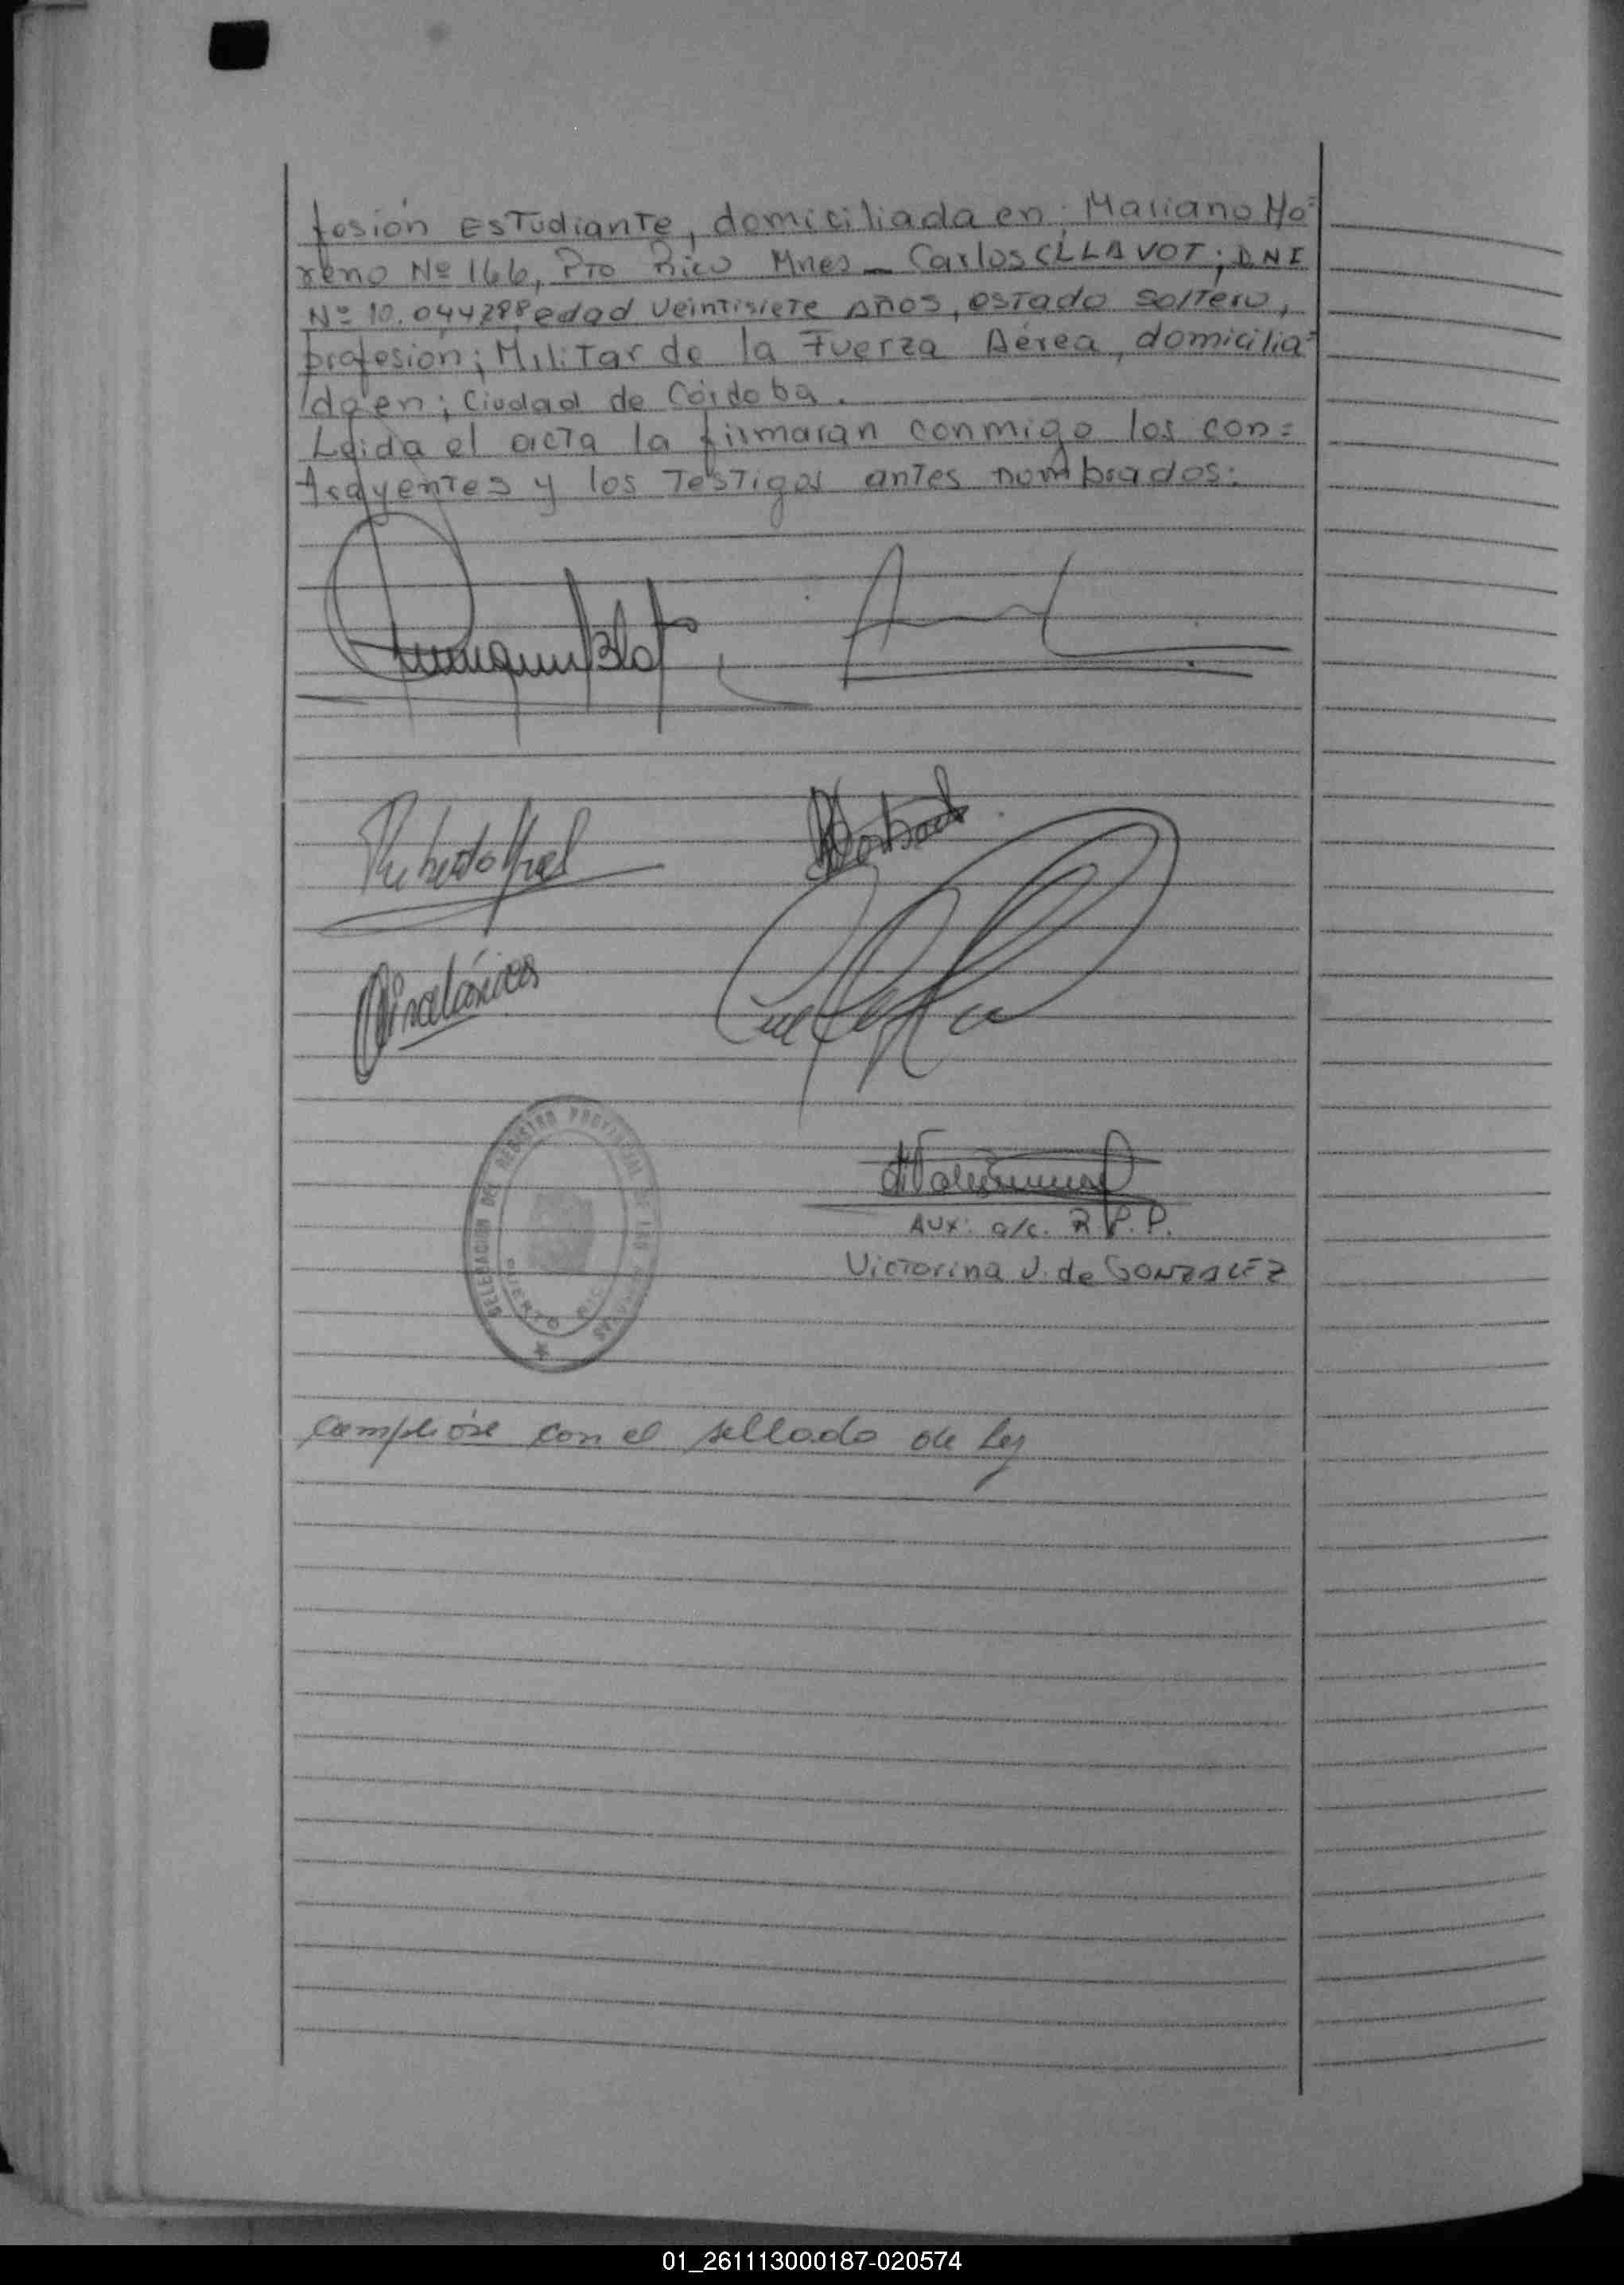 fesión Estudiante, domiciliada en; Mariano Mo=
reno Nº 166, Pto Rico Mnes — Carlos CLLAVOT; DNI
Nº 10.044288 edad veintisiete Años, estado soltero,
profesión; Militar de la Fuerza Aérea, domicilia=
do en; Ciudad de Córdoba.
Leida el acta la firmaran conmigo los con=
trayentes y los Testigos antes nombrados:
DELEGACION DEL REGISTRO PROVINCIAL DE LAS PERSONAS
PUERTO RICO
Aux: a/c. R.P.P.
Victorina J. de GONZALEZ
Cumplióse con el sellado de Ley
01_261113000187-020574